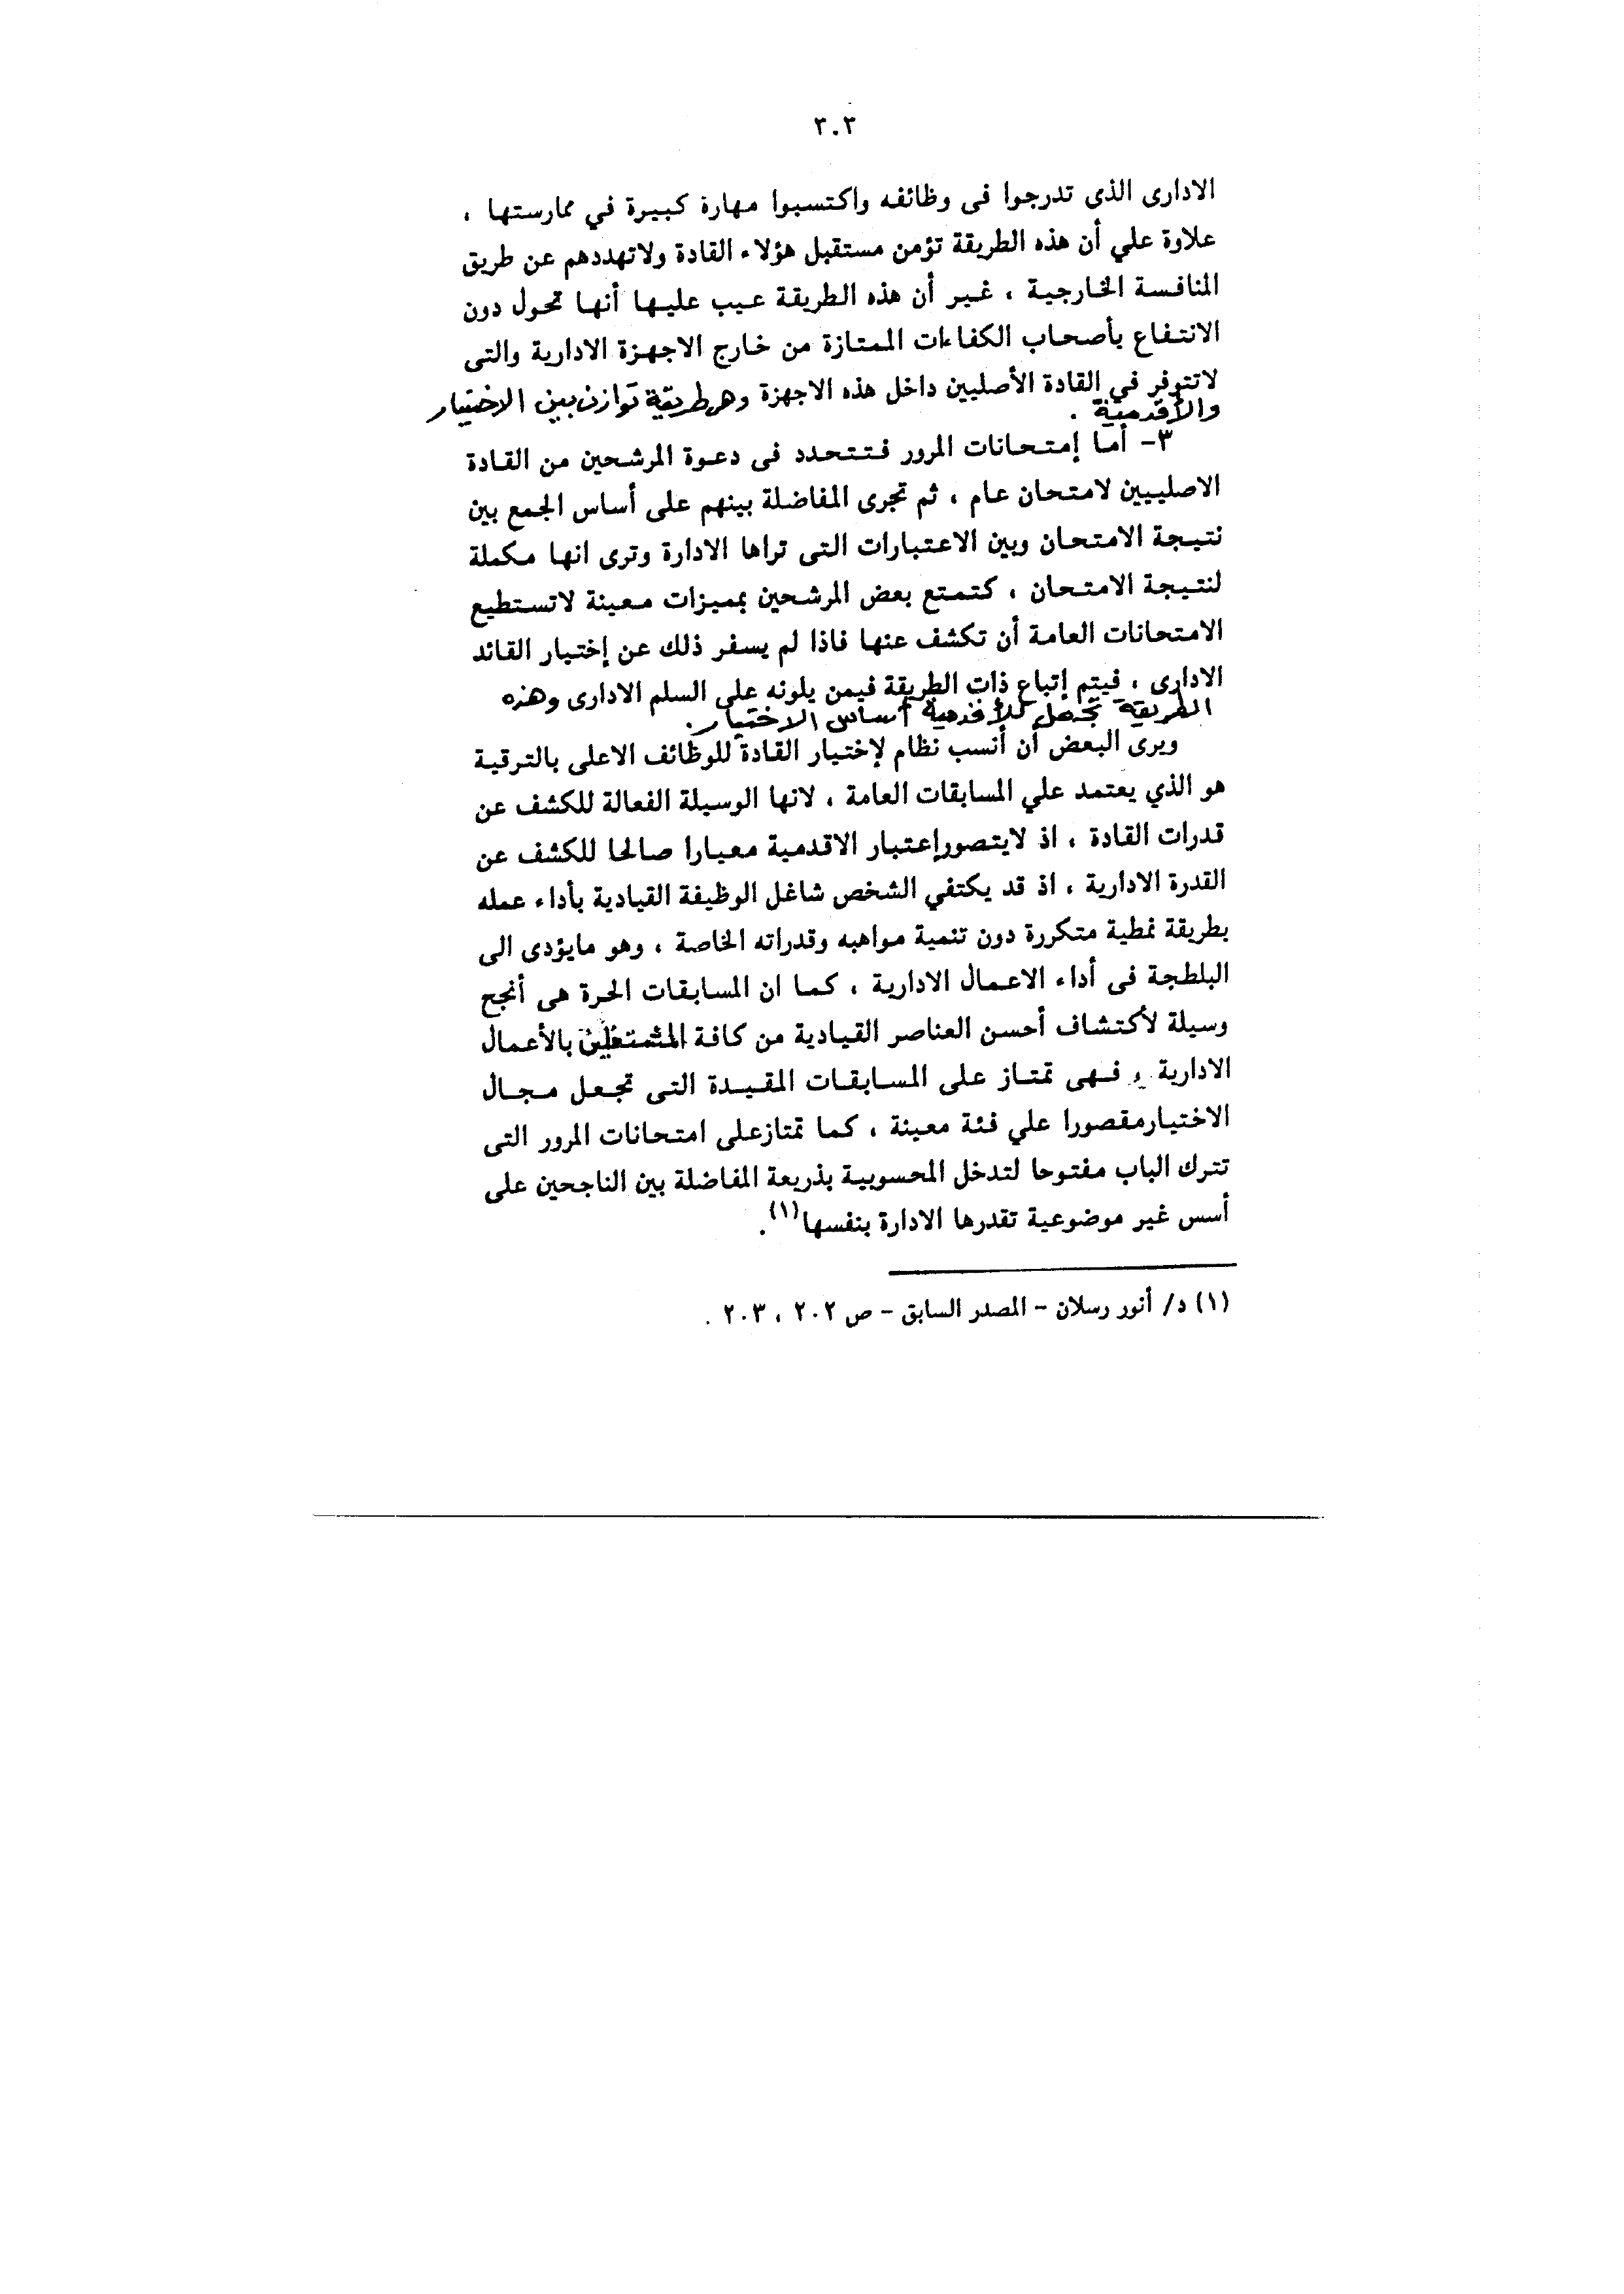 ٣٠٢
الادارى الذى تدرجوا فى وظائفه واكتسبوا مهارة كبيرة في ممارستها ،
علاوة علي أن هذه الطريقة تؤمن مستقبل هؤلاء القادة ولاتهددهم عن طريق
المنافسة الخارجية ، غير أن هذه الطريقة عيب عليها أنها تحول دون
الانتفاع بأصحاب الكفاءات الممتازة من خارج الاجهزة الادارية والتى
لاتتوفر في القادة الأصليين داخل هذه الاجهزة وهى طريقة توازن بين الاختيار
والأقدمية .
٣- أما إمتحانات المرور فتتحدد فى دعوة المرشحين من القادة
الاصليين لامتحان عام ، ثم تجرى المفاضلة بينهم على أساس الجمع بين
نتيجة الامتحان وبين الاعتبارات التى تراها الادارة وترى انها مكملة
لنتيجة الامتحان ، كتمتع بعض المرشحين بمميزات معينة لاتستطيع
الامتحانات العامة أن تكشف عنها فاذا لم يسفر ذلك عن إختيار القائد
الادارى ، فيتم إتباع ذات الطريقة فيمن يلونه على السلم الادارى وهذه
الطريقة تجعل للأقدمية أساس الاختيار .
ويرى البعض أن أنسب نظام لإختيار القادة للوظائف الاعلى بالترقية
هو الذي يعتمد علي المسابقات العامة ، لانها الوسيلة الفعالة للكشف عن
قدرات القادة ، اذ لايتصورإعتبار الاقدمية معيارا صالحا للكشف عن
القدرة الادارية ، اذ قد يكتفي الشخص شاغل الوظيفة القيادية بأداء عمله
بطريقة نمطية متكررة دون تنمية مواهبه وقدراته الخاصة ، وهو مايؤدى الى
البلطجة فى أداء الاعمال الادارية ، كما ان المسابقات الحرة هى أنجح
وسيلة لأكتشاف أحسن العناصر القيادية من كافة المشتغلين بالأعمال
الادارية ، فهى تمتاز على المسابقات المقيدة التى تجعل مجال
الاختيارمقصورا علي فئة معينة ، كما تمتازعلى امتحانات المرور التى
تترك الباب مفتوحا لتدخل المحسوبية بذريعة المفاضلة بين الناجحين على
أسس غير موضوعية تقدرها الادارة بنفسها(١).
(١) د/ أنور رسلان - المصدر السابق - ص ٢٠٢ ، ٢٠٣ .